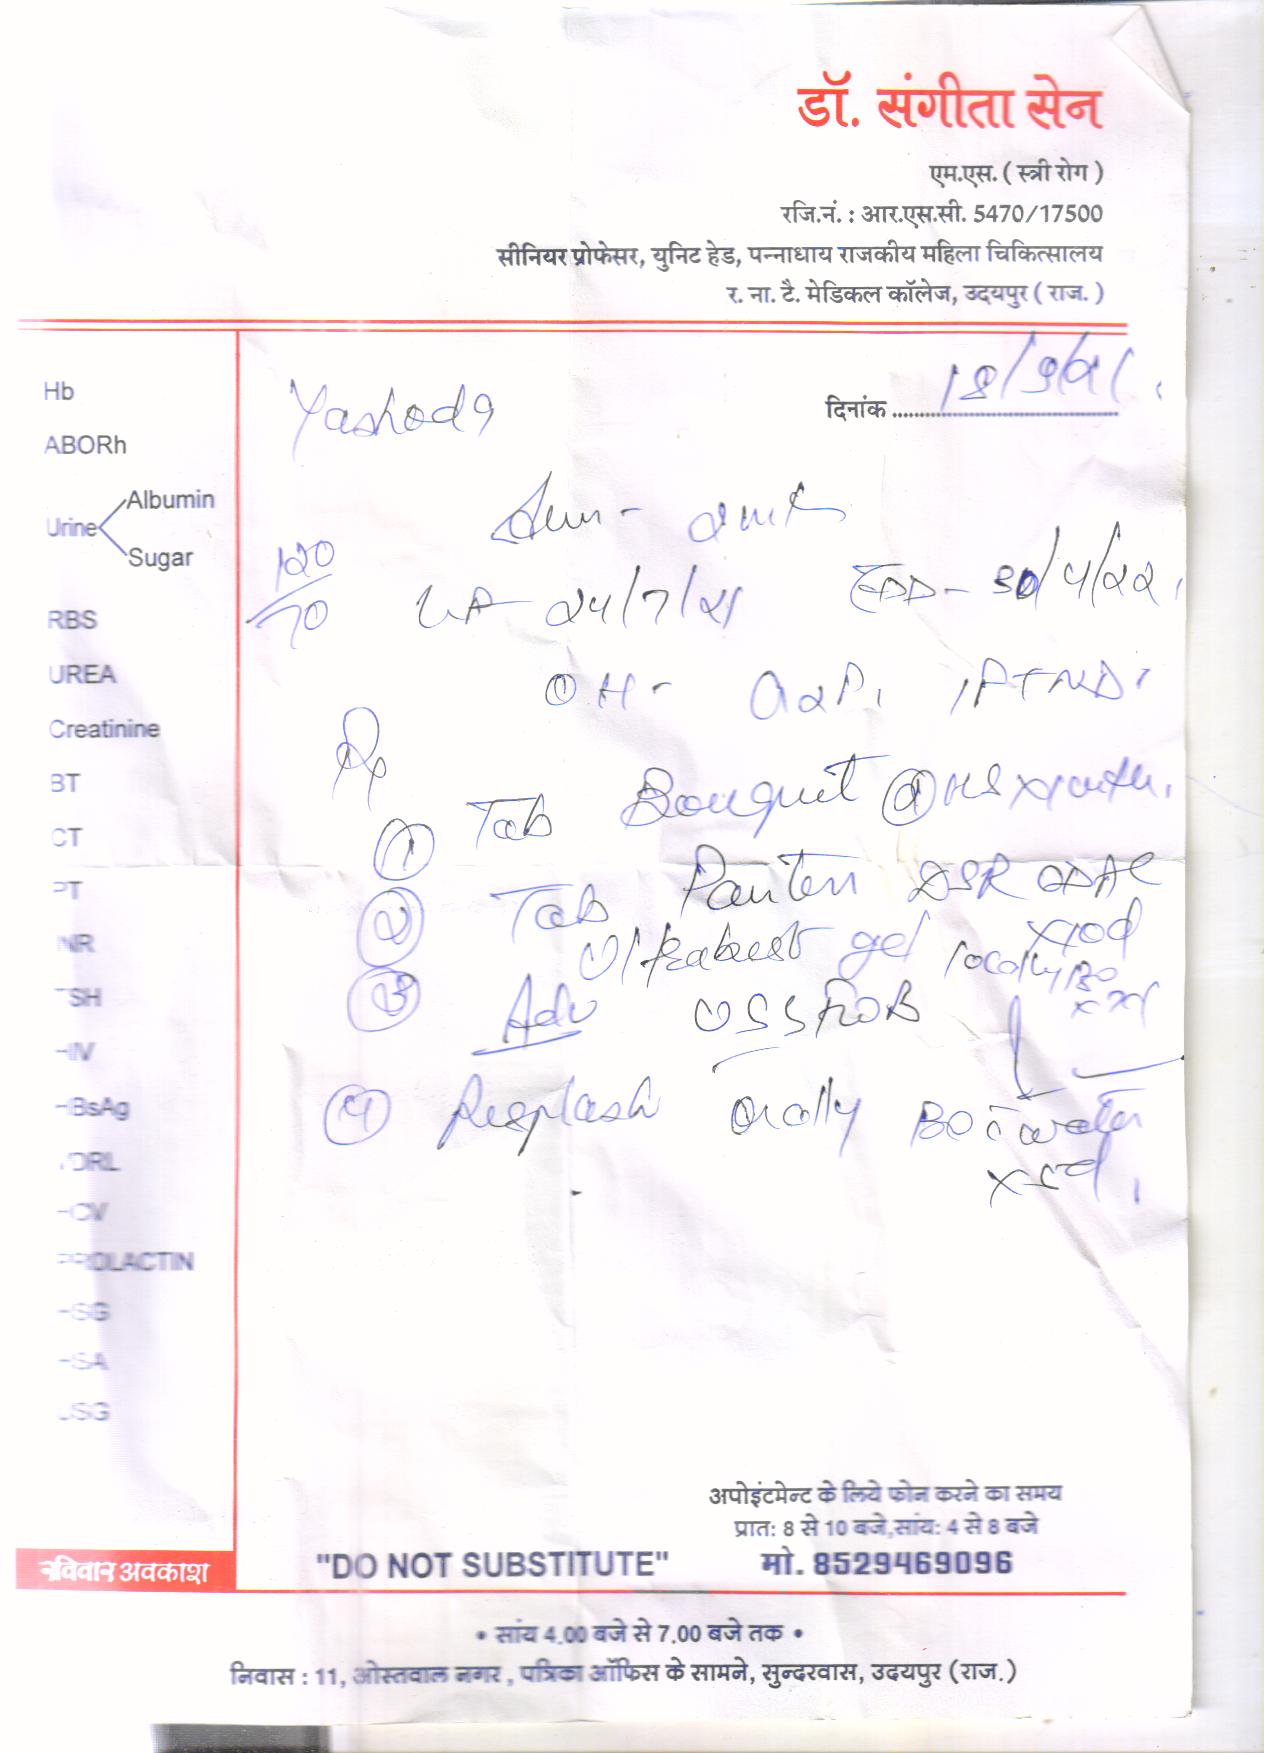 डॉ. संगीता सेन
एम.एस. ( स्त्री रोग )
रजि.नं. : आर.एस.सी. 5470/17500
सीनियर प्रोफेसर, युनिट हेड, पन्नाधाय राजकीय महिला चिकित्सालय
र. ना. टै. मेडिकल कॉलेज, उदयपुर ( राज. )
Hb
ABORh
Urine
Albumin
Sugar
RBS
UREA
Creatinine
BT
CT
PT
INR
TSH
HIV
HBsAg
VDRL
HCV
PROLACTIN
HSG
HSA
USG
Yashoda
दिनांक 18/9/21
120/70
24/7/21 EDD - 30/4/22
OH - G2P1 1FTND
Rp
① Tab Bouquet HS x 1 month
② Tab Panten DSR OD AC x 10d
gel locally BD
③ Adv USS FOB
④ Resplash orally BD c water
x 5d
रविवार अवकाश
"DO NOT SUBSTITUTE"
अपोइंटमेन्ट के लिये फोन करने का समय
प्रात: 8 से 10 बजे,सांय: 4 से 8 बजे
मो. 8529469096
• सांय 4.00 बजे से 7.00 बजे तक •
निवास : 11, ओस्तवाल नगर , पत्रिका ऑफिस के सामने, सुन्दरवास, उदयपुर (राज.)